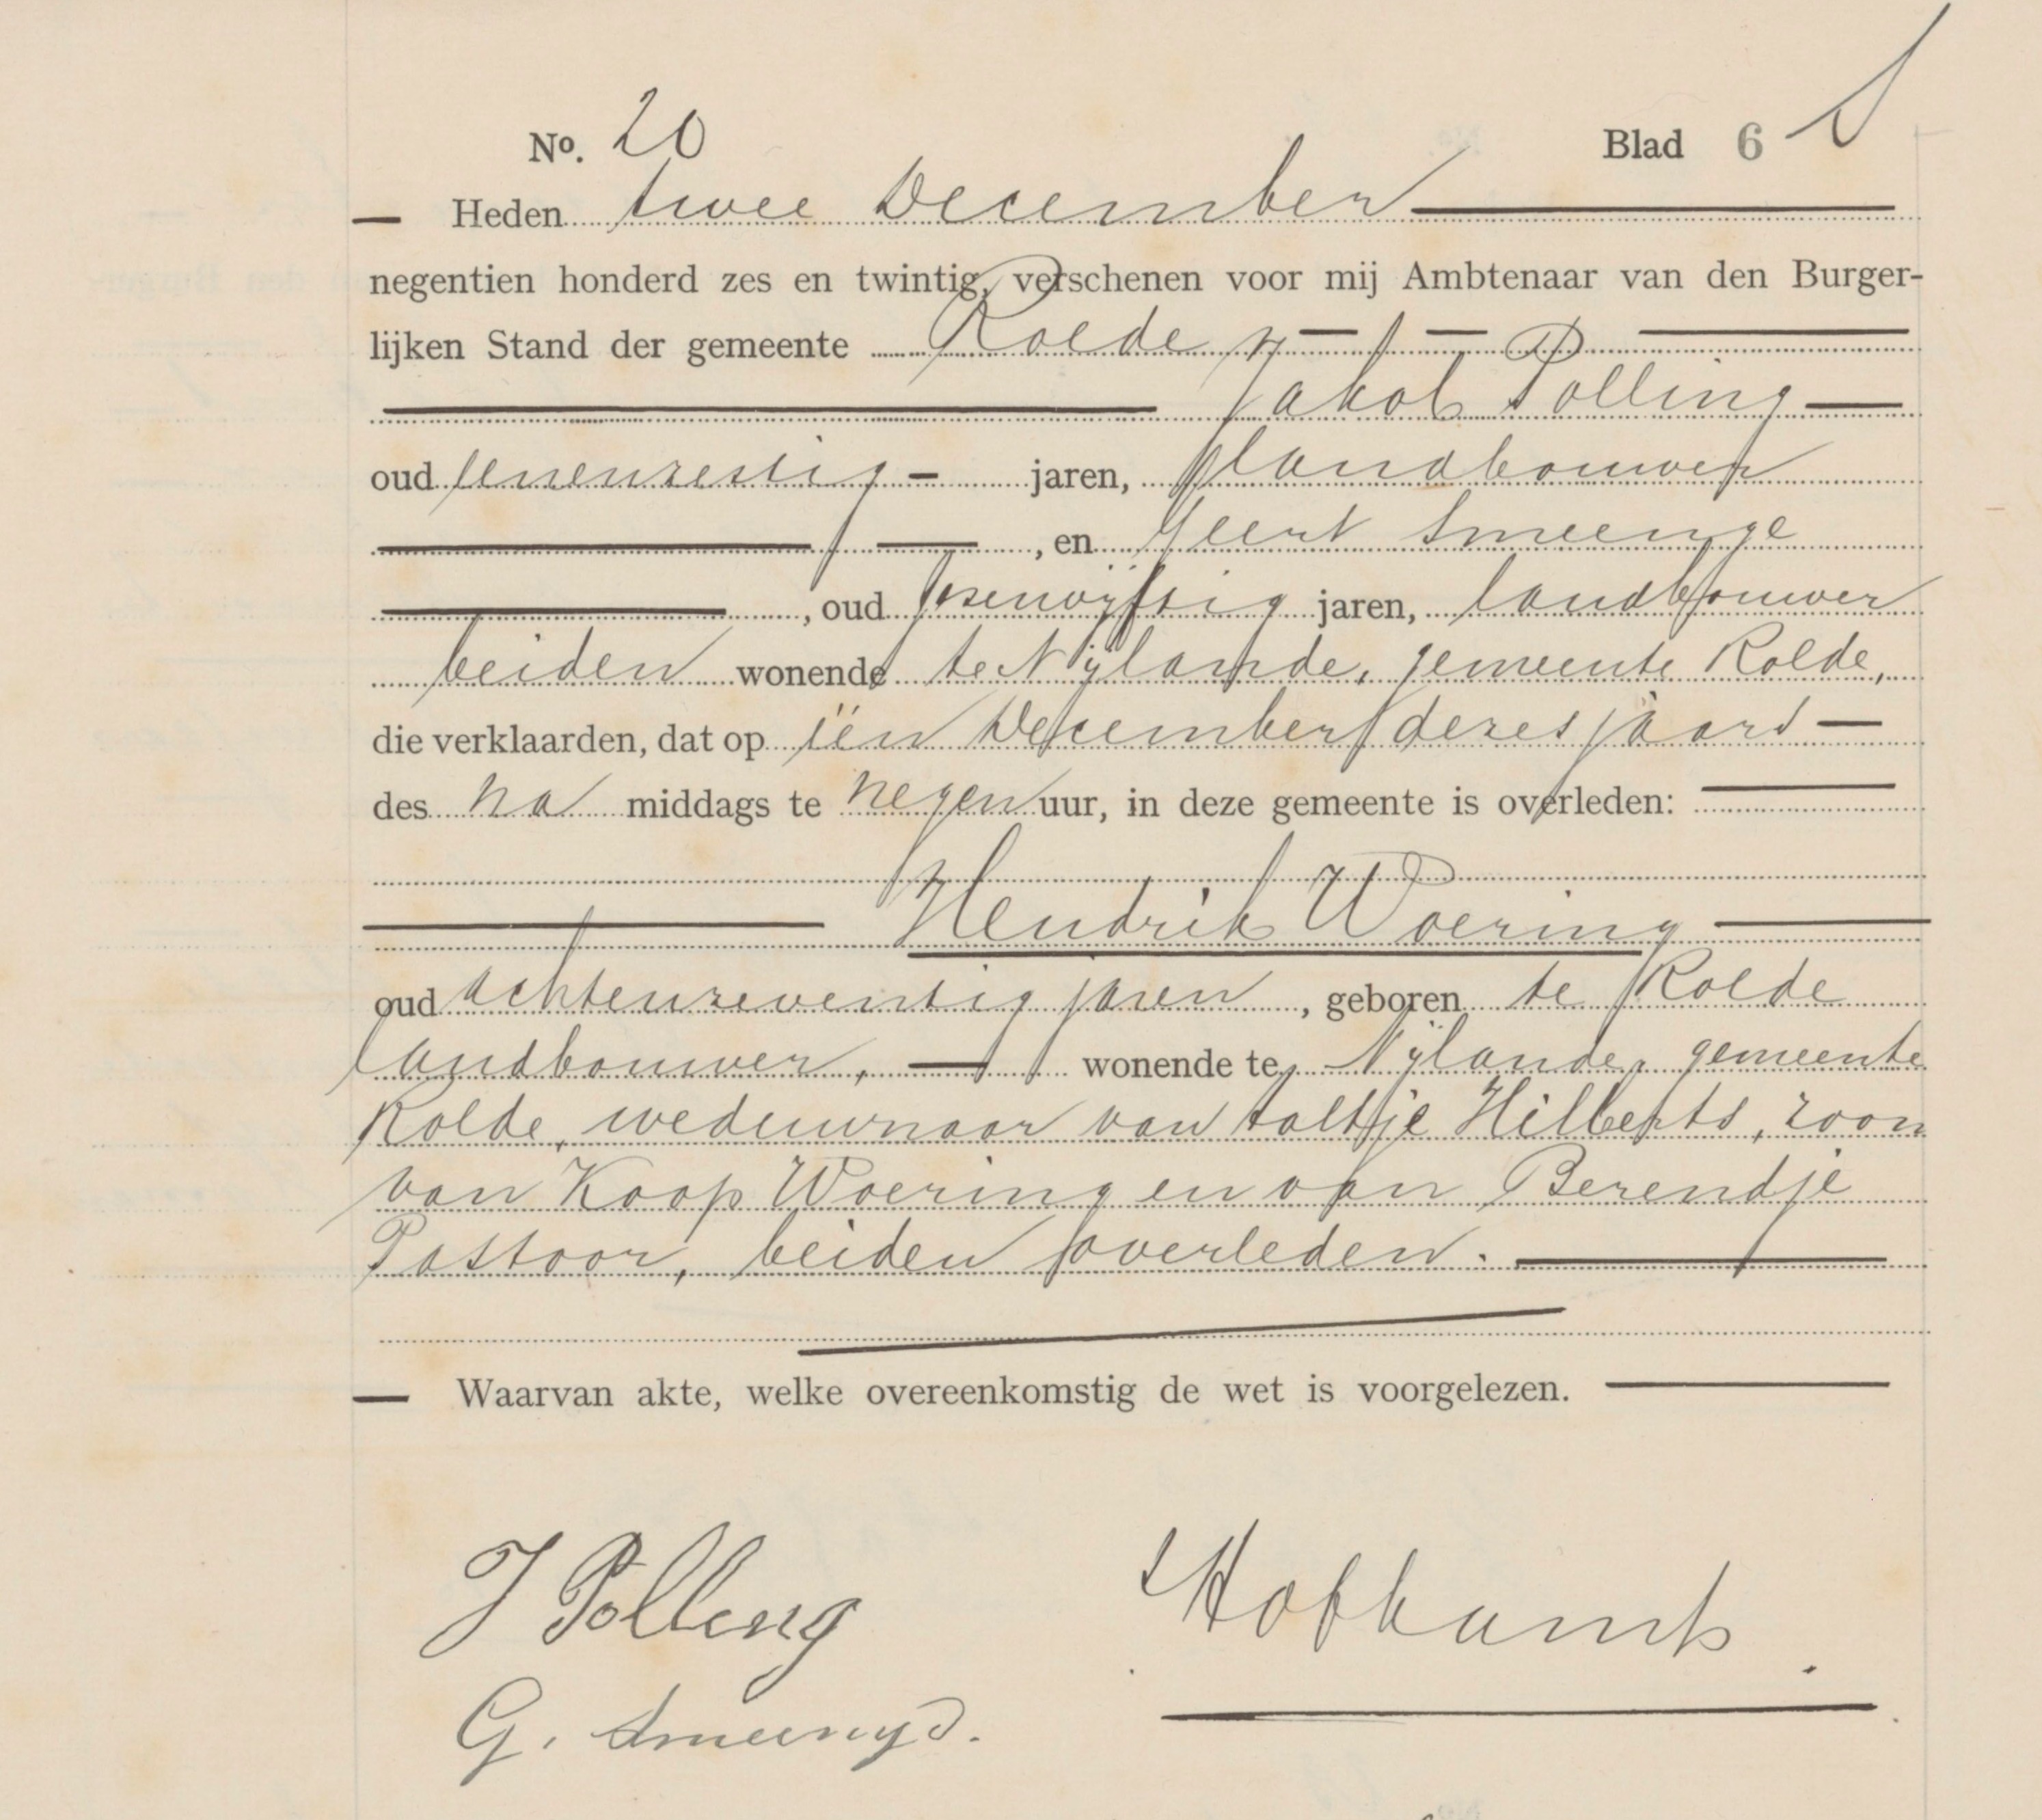 No. 20 Blad 6
Heden twee December
negentien honderd zes en twintig, verschenen voor mij Ambtenaar van den Burger-
lijken Stand der gemeente Rolde
Jakob Polling
oud eenenzestig jaren, landbouwer
, en Geert Smeenge
, oud zesenvijftig jaren, landbouwer
beiden wonende te Nijlande, gemeente Rolde,
die verklaarden, dat op één December dezes jaars
des na middags te negen uur, in deze gemeente is overleden:
Hendrik Woering
oud achtenzeventig jaren, geboren te Rolde
landbouwer, wonende te Nijlande, gemeente
Rolde, weduwnaar van Taltje Hilberts, zoon
van Koop Woering en van Berendje
Pastoor, beiden overleden.
Waarvan akte, welke overeenkomstig de wet is voorgelezen.
J Polling Hofkamp
G. Smeenge.